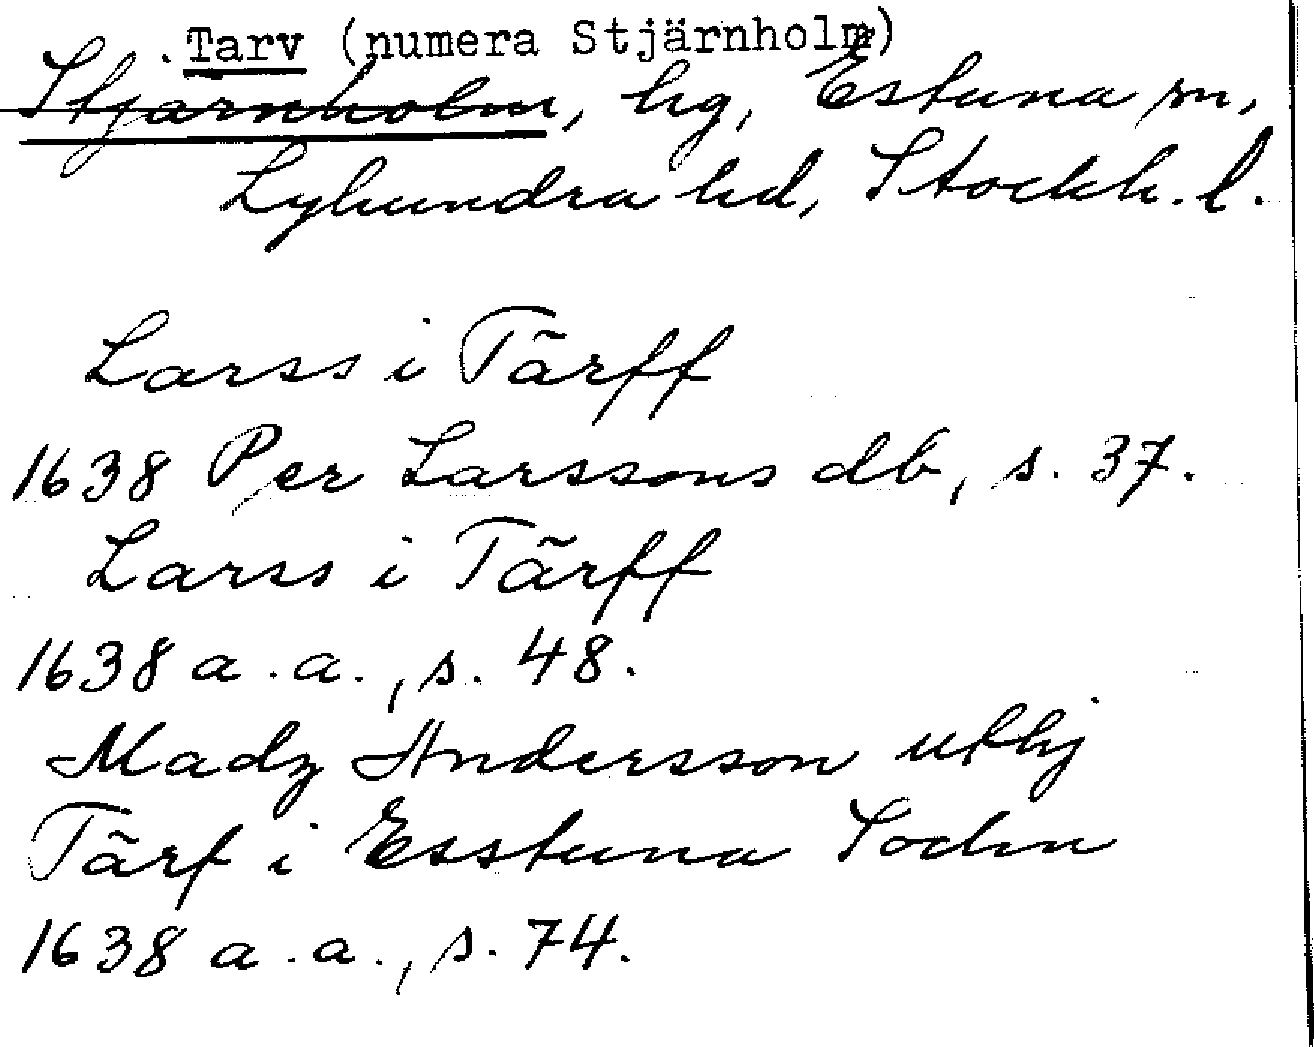 Tarv (numera Stjärnholm)
Stjärnholm, hg, Estuna sn,
Lyhundra hd, Stockh. l.
Larss i Tärff
1638 Per Larssons db, s. 37.
Larss i Tärff
1638 a.a., s. 48.
Madz Andersson uthij
Tärf i Esstuna Sochn
1638 a.a., s. 74.